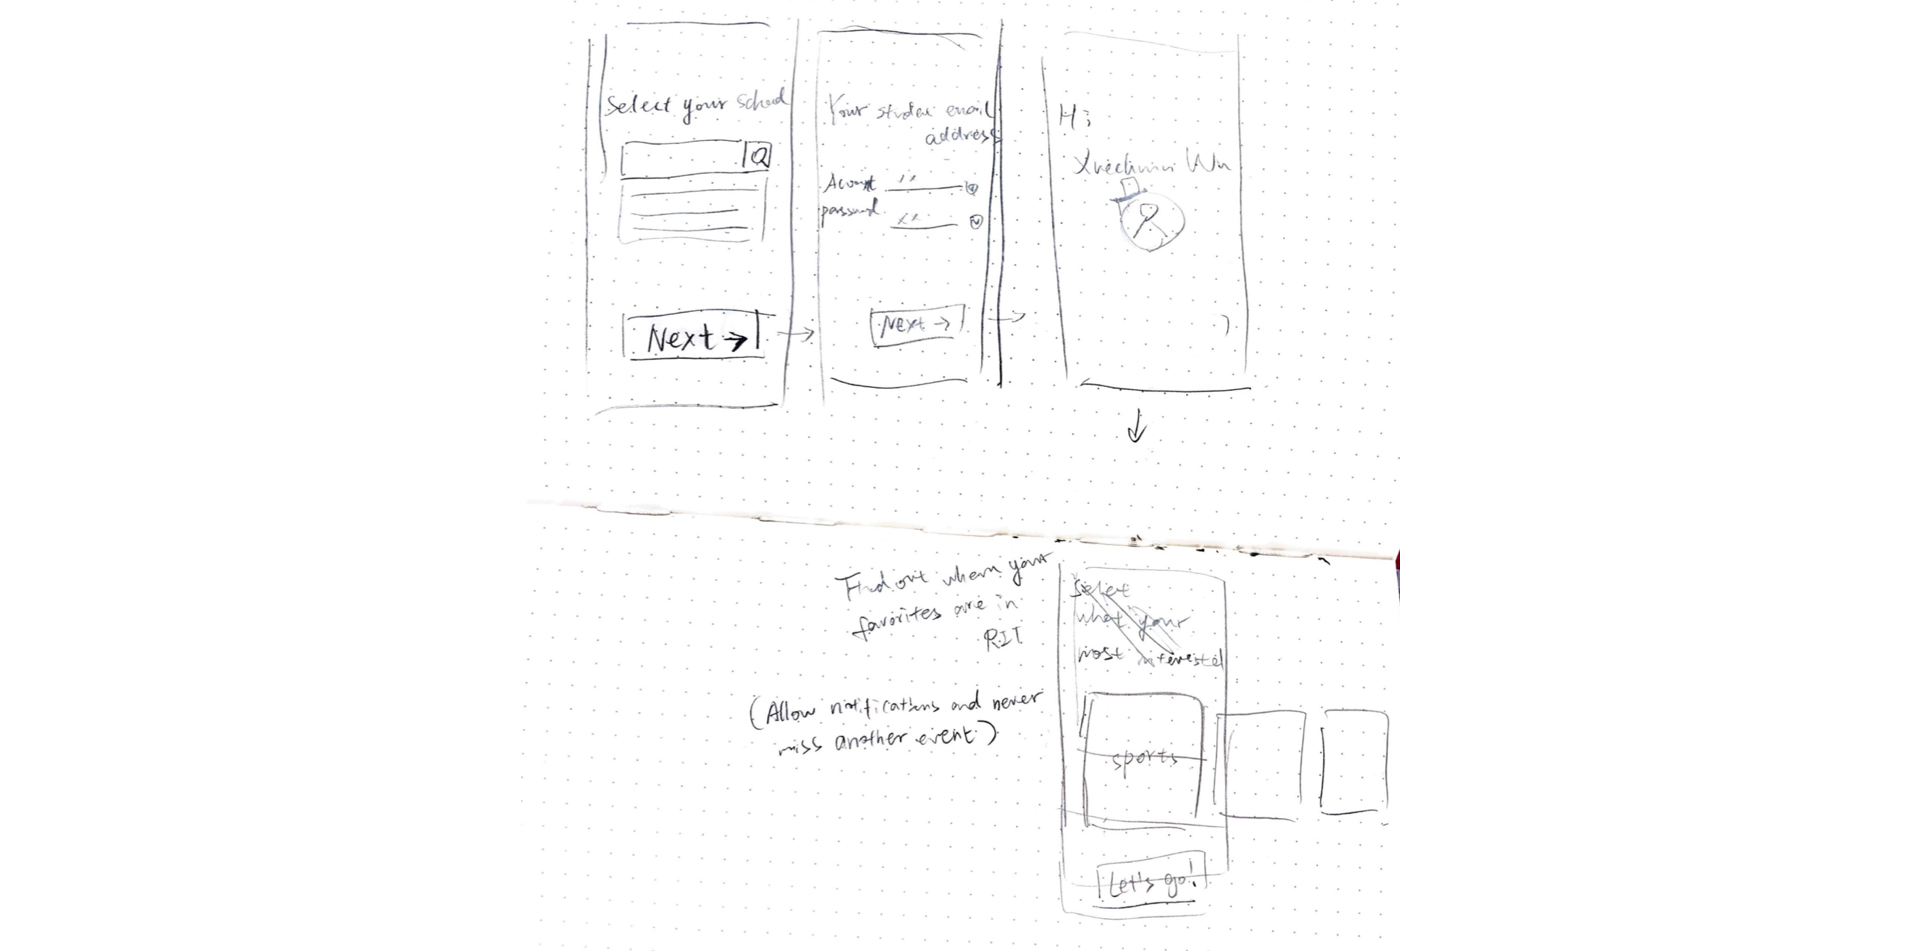 Select your School
Next →
Your studen email
address
Acount
password
Next →
Hi
Wu
Find out when your
favorites are in
RIT
(Allow notifications and never
miss another event.)
Select
what your
most interested
sports
Let's go!